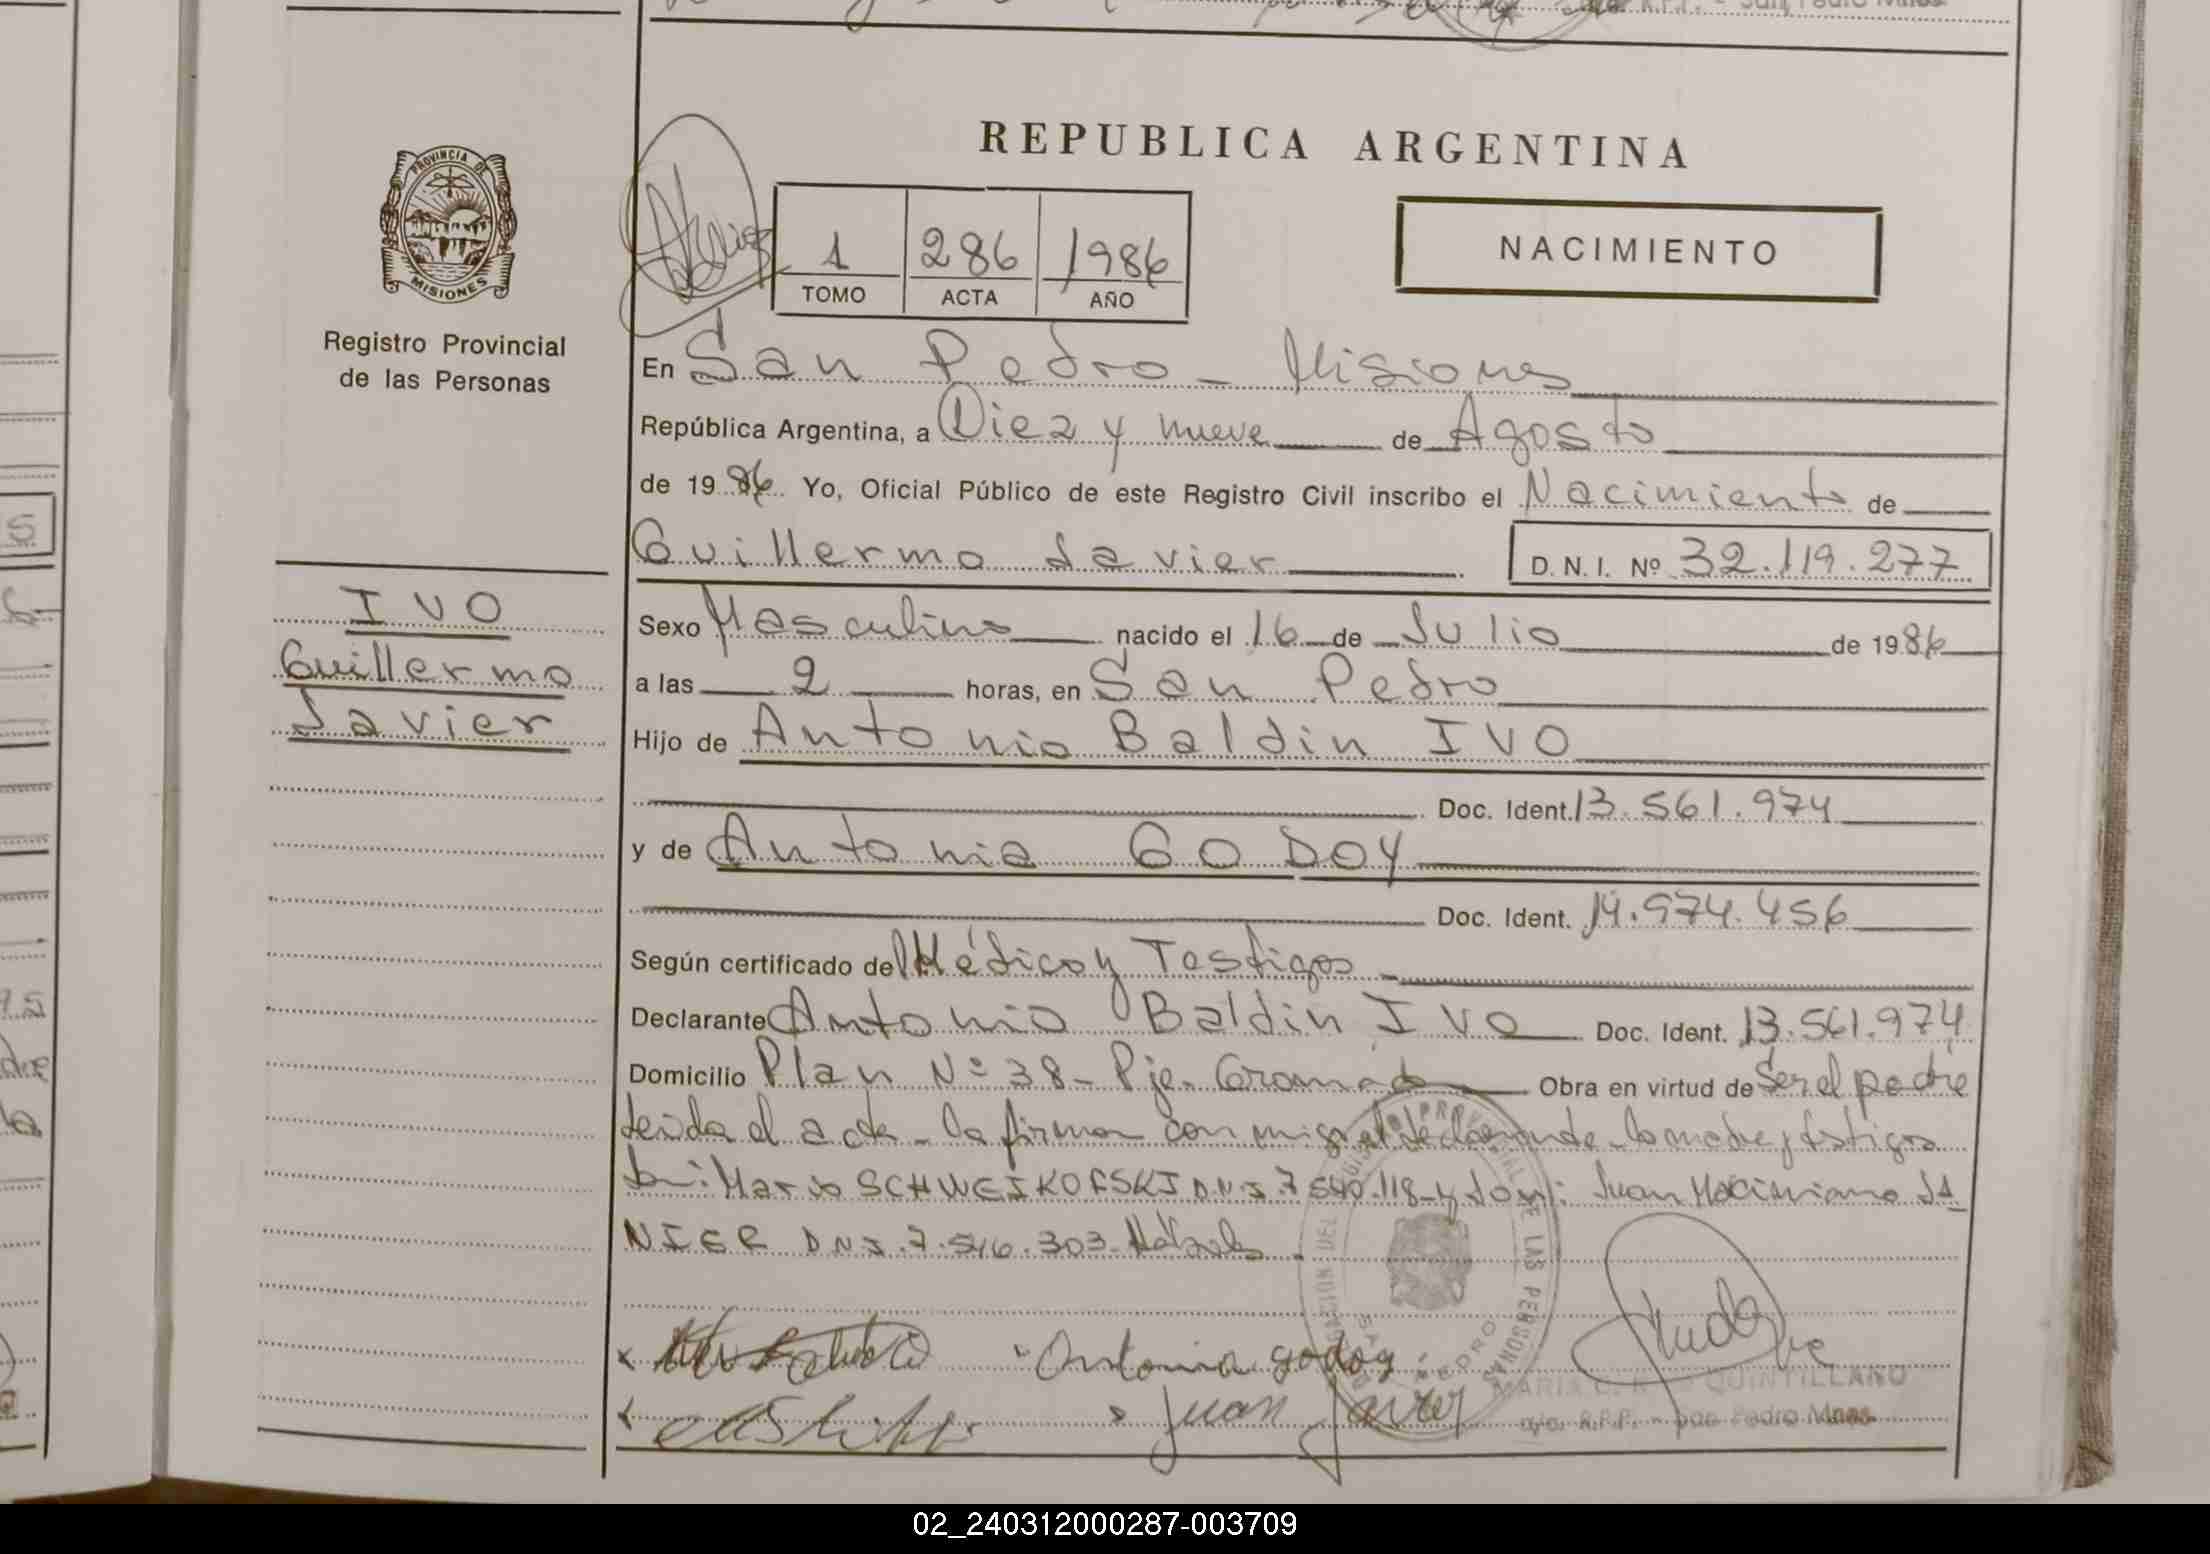 REPUBLICA ARGENTINA
PROVINCIA DE
MISIONES
Registro Provincial
de las Personas
1 286 1986
TOMO ACTA AÑO
NACIMIENTO
En San Pedro - Misiones
República Argentina, a Diez y nueve de Agosto
de 1986. Yo, Oficial Público de este Registro Civil inscribo el Nacimiento de
Guillermo Javier D.N.I. Nº 32.119.277
IVO
Guillermo
Javier
Sexo Masculino nacido el 16 de Julio de 1986
a las 2 horas, en San Pedro
Hijo de Antonio Baldin IVO
Doc. Ident. 13.561.974
y de Antonia GODOY
Doc. Ident. 14.974.456
Según certificado del Médico y Testigos -
Declarante Antonio Baldin IVO Doc. Ident. 13.561.974
Domicilio Plan Nº 38 - Pje. Gramado Obra en virtud de Ser el padre
leida el acta - la firman con migo el declarante - la madre y testigos
Mario SCHWEIKOFSKI DNI. 7.540.118 - y don: Juan Maximiano JA
NIER DNI. 7.516.303
Antonia godoy
Juan Javier
DE LAS PERSONAS
SAN PEDRO
QUINTILLANO
R.P.P. - San Pedro Mnes.
02_240312000287-003709